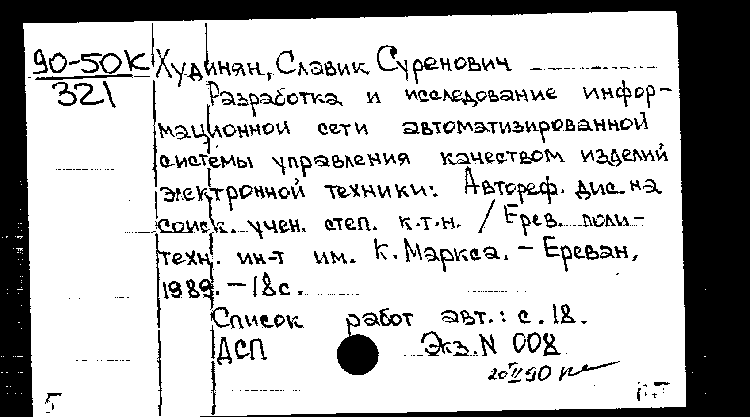 90-50К
321
Худинян, Славик Суренович
Разработка и исследование инфор-
мационной сети автоматизированной
системы управления качеством изделий
электронной техники: Автореф. дис. на
соиск. учен. степ. к.т.н. / Ерев. поли-
техн. ин-т им. К. Маркса. – Ереван,
1989. – 18с.
Список работ авт.: с. 18.
ДСП Экз. N 008
5